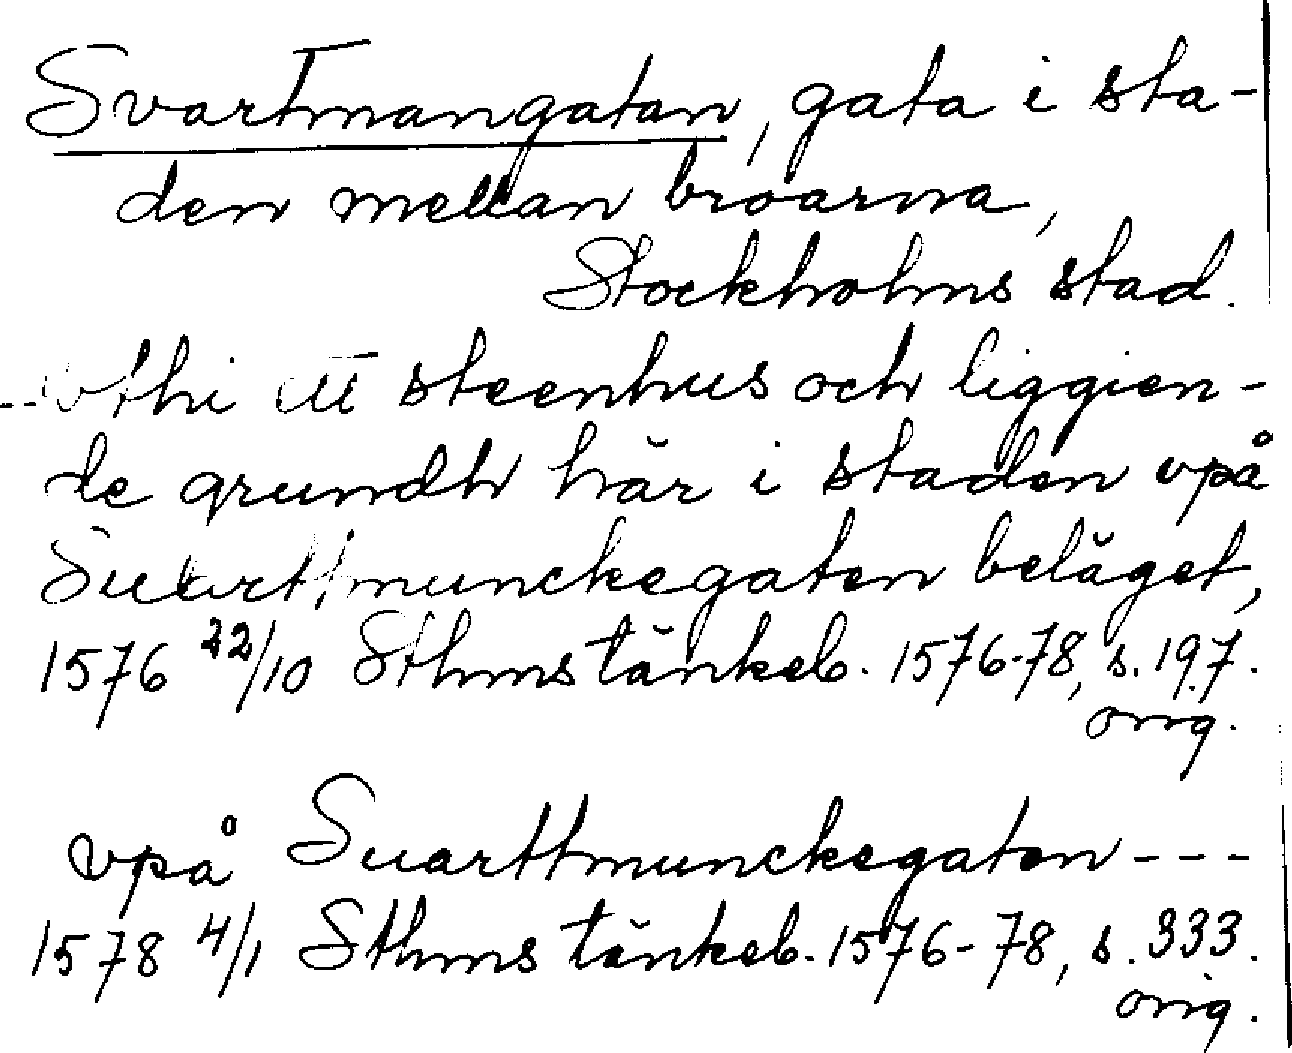 Svartmangatan, gata i sta-
den mellan broarna,
Stockholms stad.
--vthi ett steenhus och liggien-
de grundh här i staden vpå
Suarttmunckegaten beläget,
1576 22/10 Sthms tänkeb. 1576-78, s. 197.
orig.
vpå Suarttmunckegaten ---
1578 4/1 Sthms tänkeb. 1576-78, s. 333.
orig.